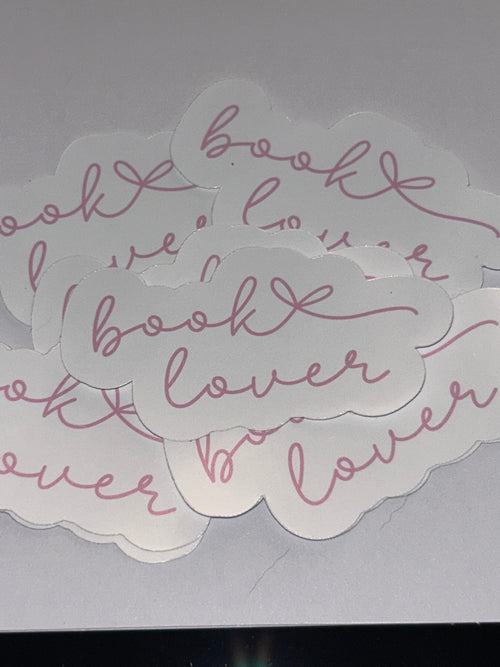 book
lover
ook
love
book
lover
book
lover
ok
over
bo
lover